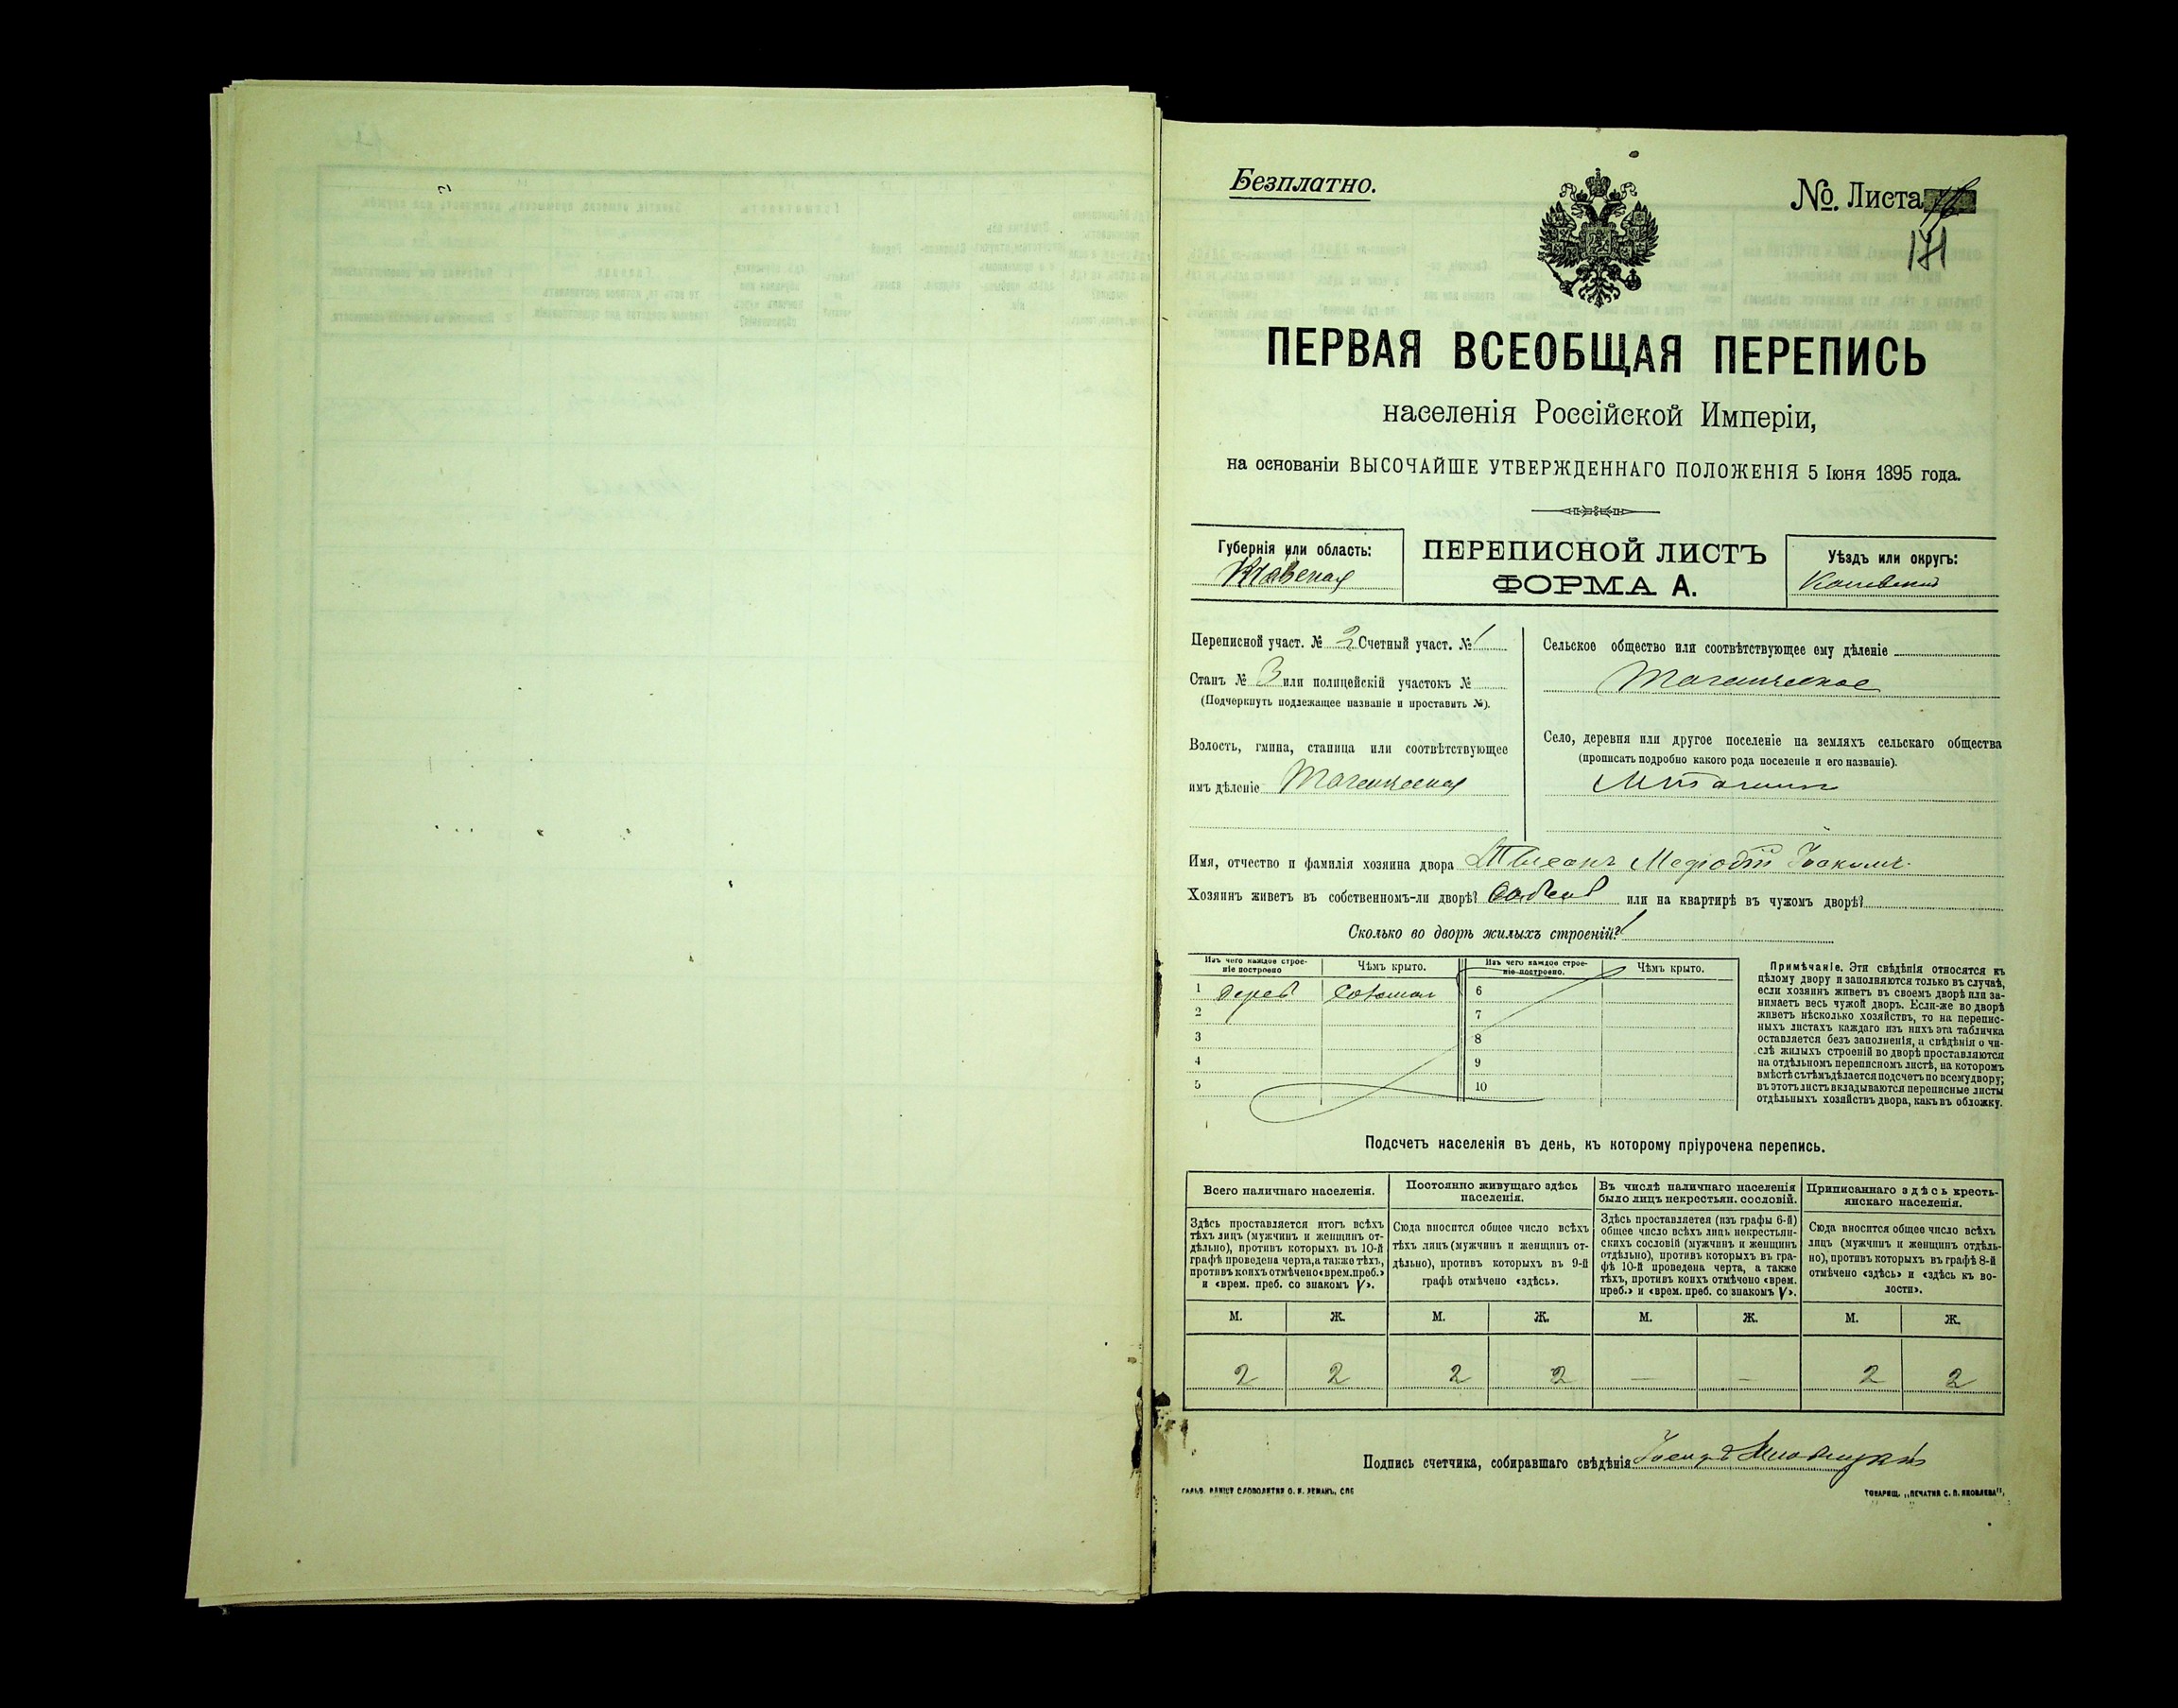 Безплатно.
№. Листа
171
ПЕРВАЯ ВСЕОБЩАЯ ПЕРЕПИСЬ
населенія Россійской Имперіи,
на основаніи ВЫСОЧАЙШЕ УТВЕРЖДЕННАГО ПОЛОЖЕНІЯ 5 Іюня 1895 года.
Губернія или область:
Кіевская
ПЕРЕПИСНОЙ ЛИСТЪ
ФОРМА А.
Уѣздъ или округъ:
Каневскій
Переписной участ. № 2 Счетный участ. № 1
Станъ № 3 или полицейскій участокъ №
(Подчеркнуть подлежащее названіе и проставить №).
Волость, гмина, станица или соотвѣтствующее
имъ дѣленіе Таганчская
Сельское общество или соотвѣтствующее ему дѣленіе
Таганчское
Село, деревня или другое поселеніе на земляхъ сельскаго общества
(прописать подробно какого рода поселеніе и его названіе).
Имя, отчество и фамилія хозяина двора Мефодій
Хозяинъ живетъ въ собственномъ-ли дворѣ? или на квартирѣ въ чужомъ дворѣ?
Сколько во дворѣ жилыхъ строеній? 1
Изъ чего каждое строе-
ніе построено
Чѣмъ крыто.
Изъ чего каждое строе-
ніе построено.
Чѣмъ крыто.
1 дерев Солошол 6
2 7
3 8
4 9
5 10
Примѣчаніе. Эти свѣдѣнія относятся къ
цѣлому двору и заполняются только въ случаѣ,
если хозяинъ живетъ въ своемъ дворѣ или за-
нимаетъ весь чужой дворъ. Если-же во дворѣ
живетъ нѣсколько хозяйствъ, то на перепис-
ныхъ листахъ каждаго изъ нихъ эта табличка
оставляется безъ заполненія, а свѣдѣнія о чи-
слѣ жилыхъ строеній во дворѣ проставляются
на отдѣльномъ переписномъ листѣ, на которомъ
вмѣстѣ съ тѣмъ дѣлается подсчетъ по всему двору;
въ этотъ листъ вкладываются переписные листы
отдѣльныхъ хозяйствъ двора, какъ въ обложку.
Подсчетъ населенія въ день, къ которому пріурочена перепись.
Всего наличнаго населенія.
Здѣсь проставляется итогъ всѣхъ
тѣхъ лицъ (мужчинъ и женщинъ от-
дѣльно), противъ которыхъ въ 10-й
графѣ проведена черта, а также тѣхъ,
противъ коихъ отмѣчено «врем. преб.»
и «врем. преб. со знакомъ V».
Постоянно живущаго здѣсь
населенія.
Сюда вносится общее число всѣхъ
тѣхъ лицъ (мужчинъ и женщинъ от-
дѣльно), противъ которыхъ въ 9-й
графѣ отмѣчено «здѣсь».
Въ числѣ наличнаго населенія
было лицъ некрестьян. сословій.
Здѣсь проставляется (изъ графы 6-й)
общее число всѣхъ лицъ некрестьян-
скихъ сословій (мужчинъ и женщинъ
отдѣльно), противъ которыхъ въ гра-
фѣ 10-й проведена черта, а также
тѣхъ, противъ коихъ отмѣчено «врем.
преб.» и «врем. преб. со знакомъ V».
Приписаннаго здѣсь кресть-
янскаго населенія.
Сюда вносится общее число всѣхъ
лицъ (мужчинъ и женщинъ отдѣль-
но), противъ которыхъ въ графѣ 8-й
отмѣчено «здѣсь» и «здѣсь къ во-
лости».
М. Ж. М. Ж. М. Ж. М. Ж.
2 2 2 2 — — 2 2
Подпись счетчика, собиравшаго свѣдѣнія
ТОВАРИЩ. „ПЕЧАТНЯ С. П. ЯКОВЛЕВА".